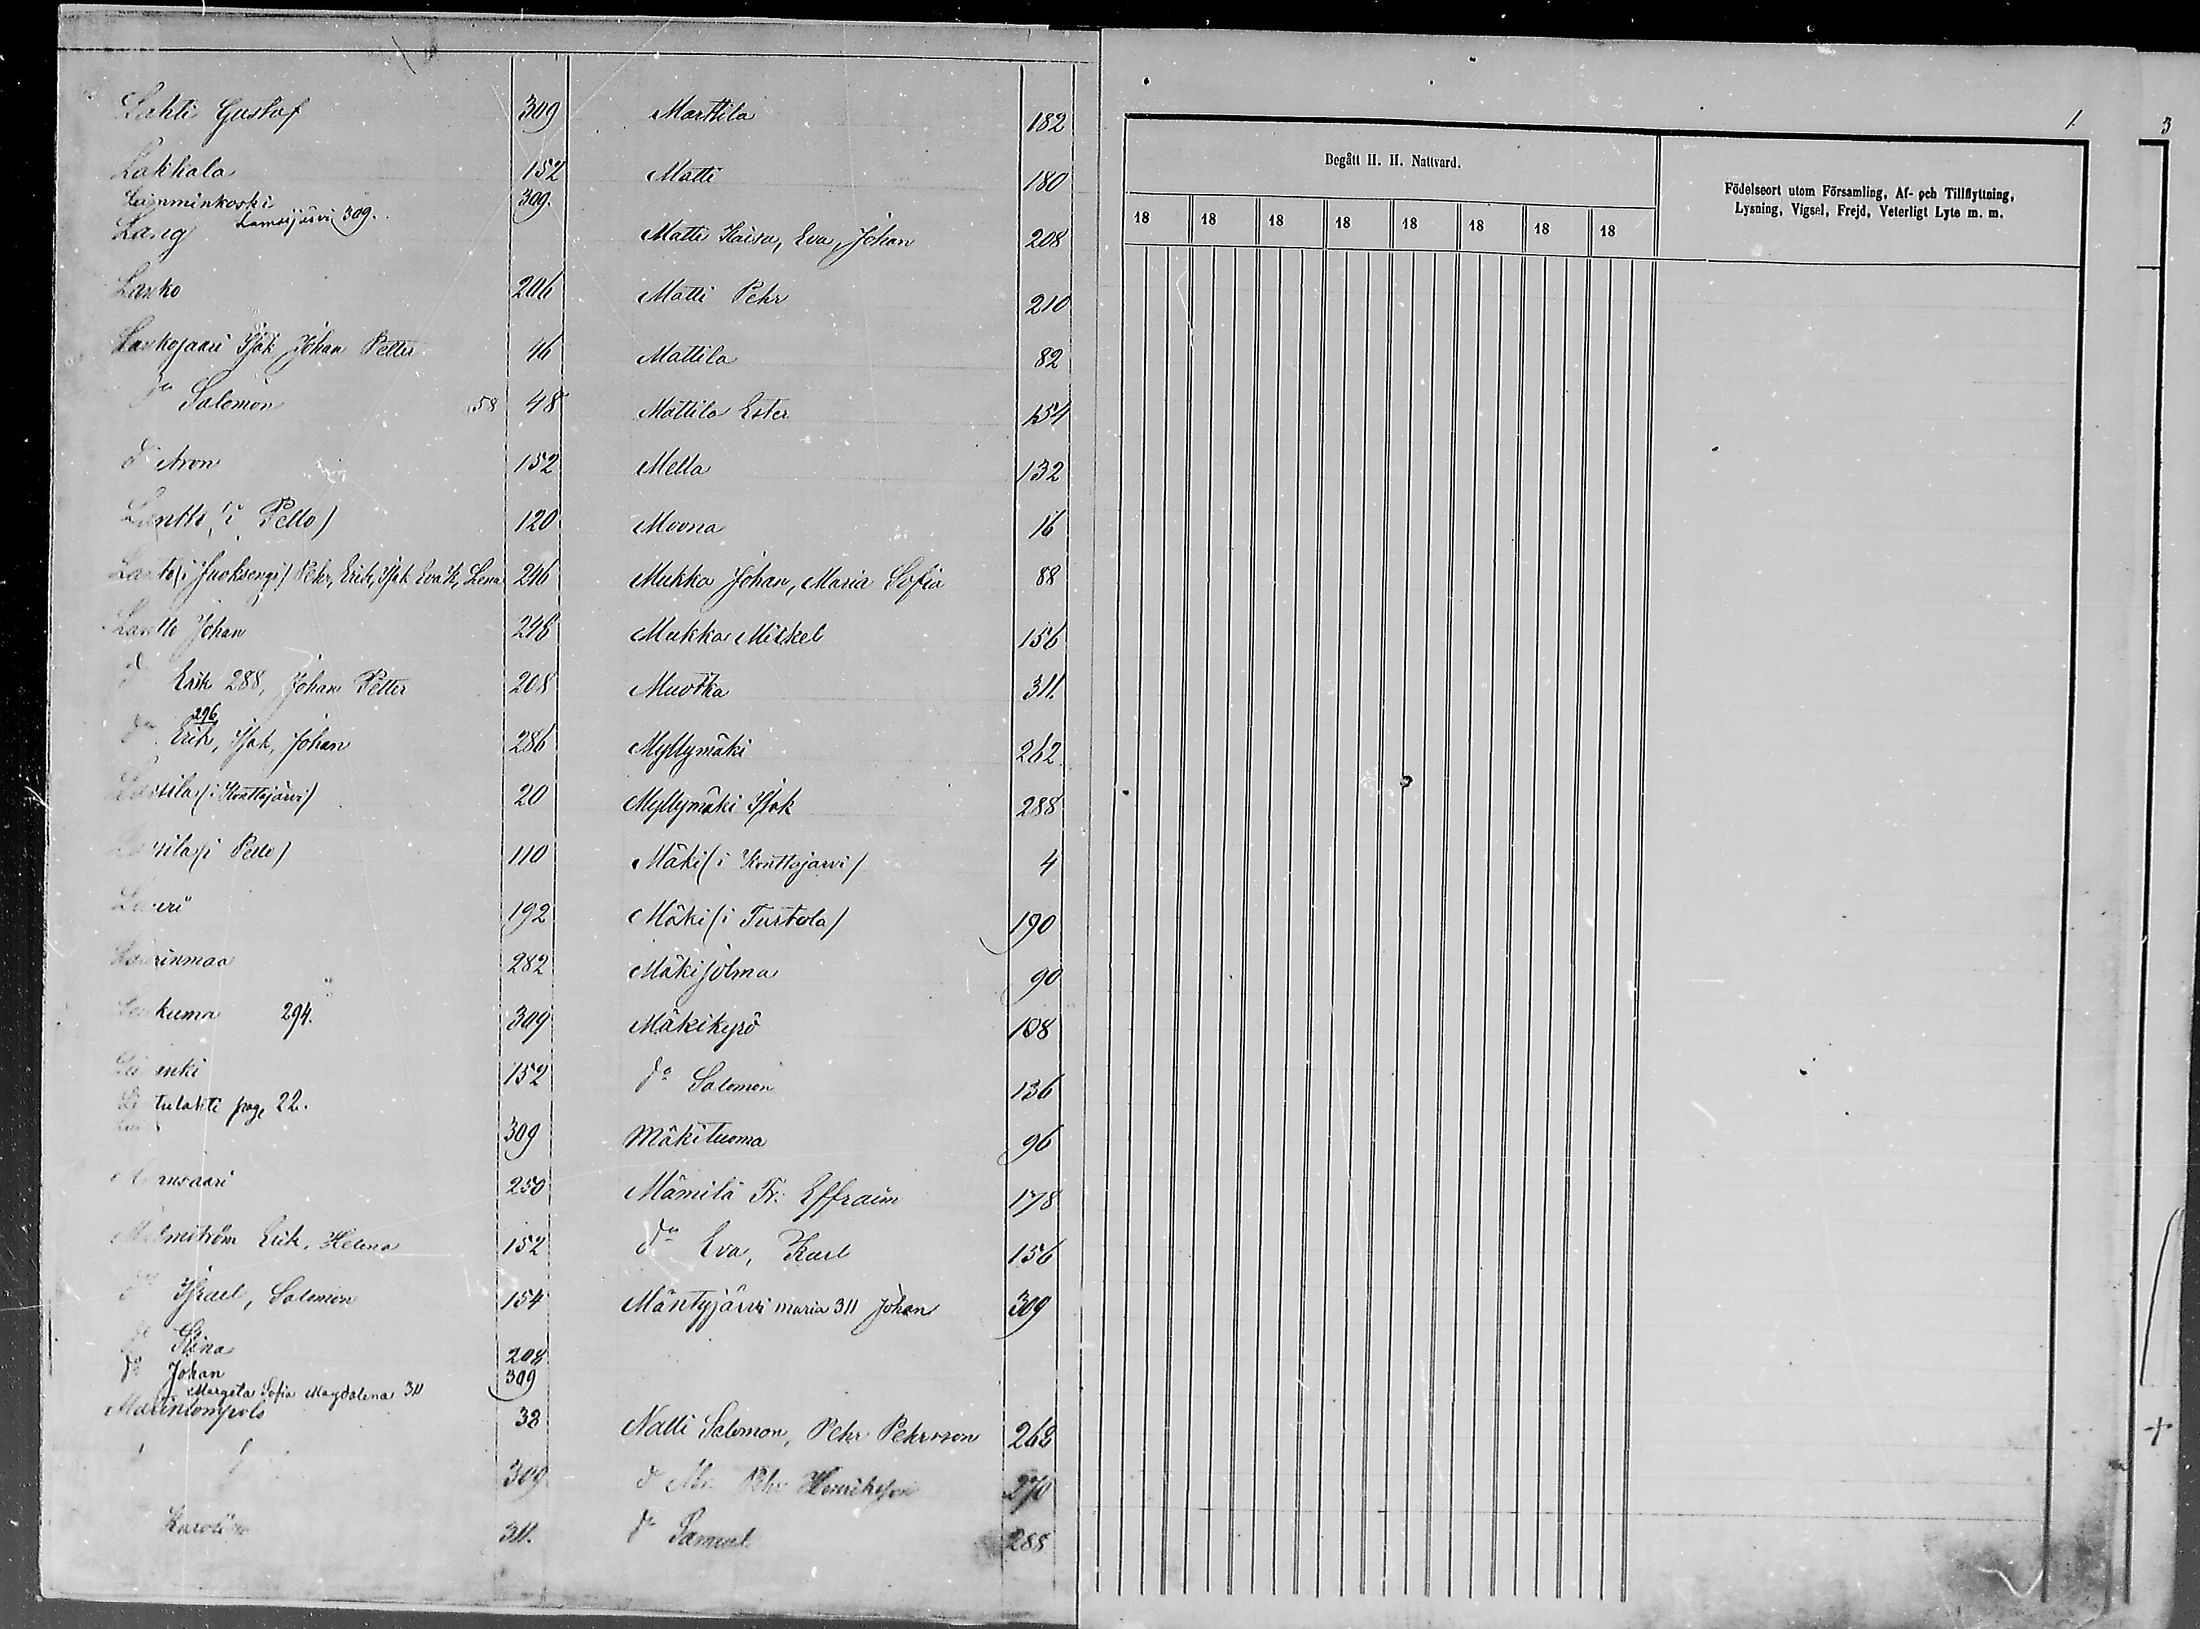 Lahti Gustaf 309
Lakkala 152
Lamminkoski 309.
Lang Lamsijärvi 309.
Lanko 206
Lankojaari Isak Johan Petter 46
do Salomon 58 48
do Aron 152
Lantto (i Pello) 120
Lantto (i Juoksengi) Pehr, Erik, Isak Eva K, Lena 246
Lantto Johan 248
do Erik 288, Johan Petter 208
296
do Erik, Isak, Johan 286
Lassila (i Konttajärvi) 20
(i Pello) 110
Lauri 192
Laurinmaa 282
294. 309
152
page 22.
309
250
Malmström Erik, Helena 152
do Israel, Salomon 154
do Stina 208
do Johan 309
Margeta Sofia Magdalena 311
38
309
311.
Marttila 182
Matti 180
Matti Kaisa, Eva, Johan 208
Matti Pehr 210
Mattila 82
Mattila Ester 154
Mella 132
Moona 16
Mukka Johan, Maria Sofia 88
Mukka Mickel 156
Muotka 311.
Myllymäki 262
Myllymäki Isak 288
Mäki (i Konttajärvi) 4
Mäki (i Turtola) 190
Mäkijolma 90
Mäkikyrö 108
do Salomon 136
Mäkituoma 96
Mämilä Fr. Effraim 178
do Eva, Karl 156
Mäntyjärvi maria 311 Johan 309
Natti Salomon, Pehr Pehrsson 268
do Pehr Henriksson 270
do Samuel 288
1.
Begått H. H. Nattvard.
18 18 18 18 18 18 18 18
Födelseort utom Församling, Af- och Tillflyttning,
Lysning, Vigsel, Frejd, Veterligt Lyte m. m.
3